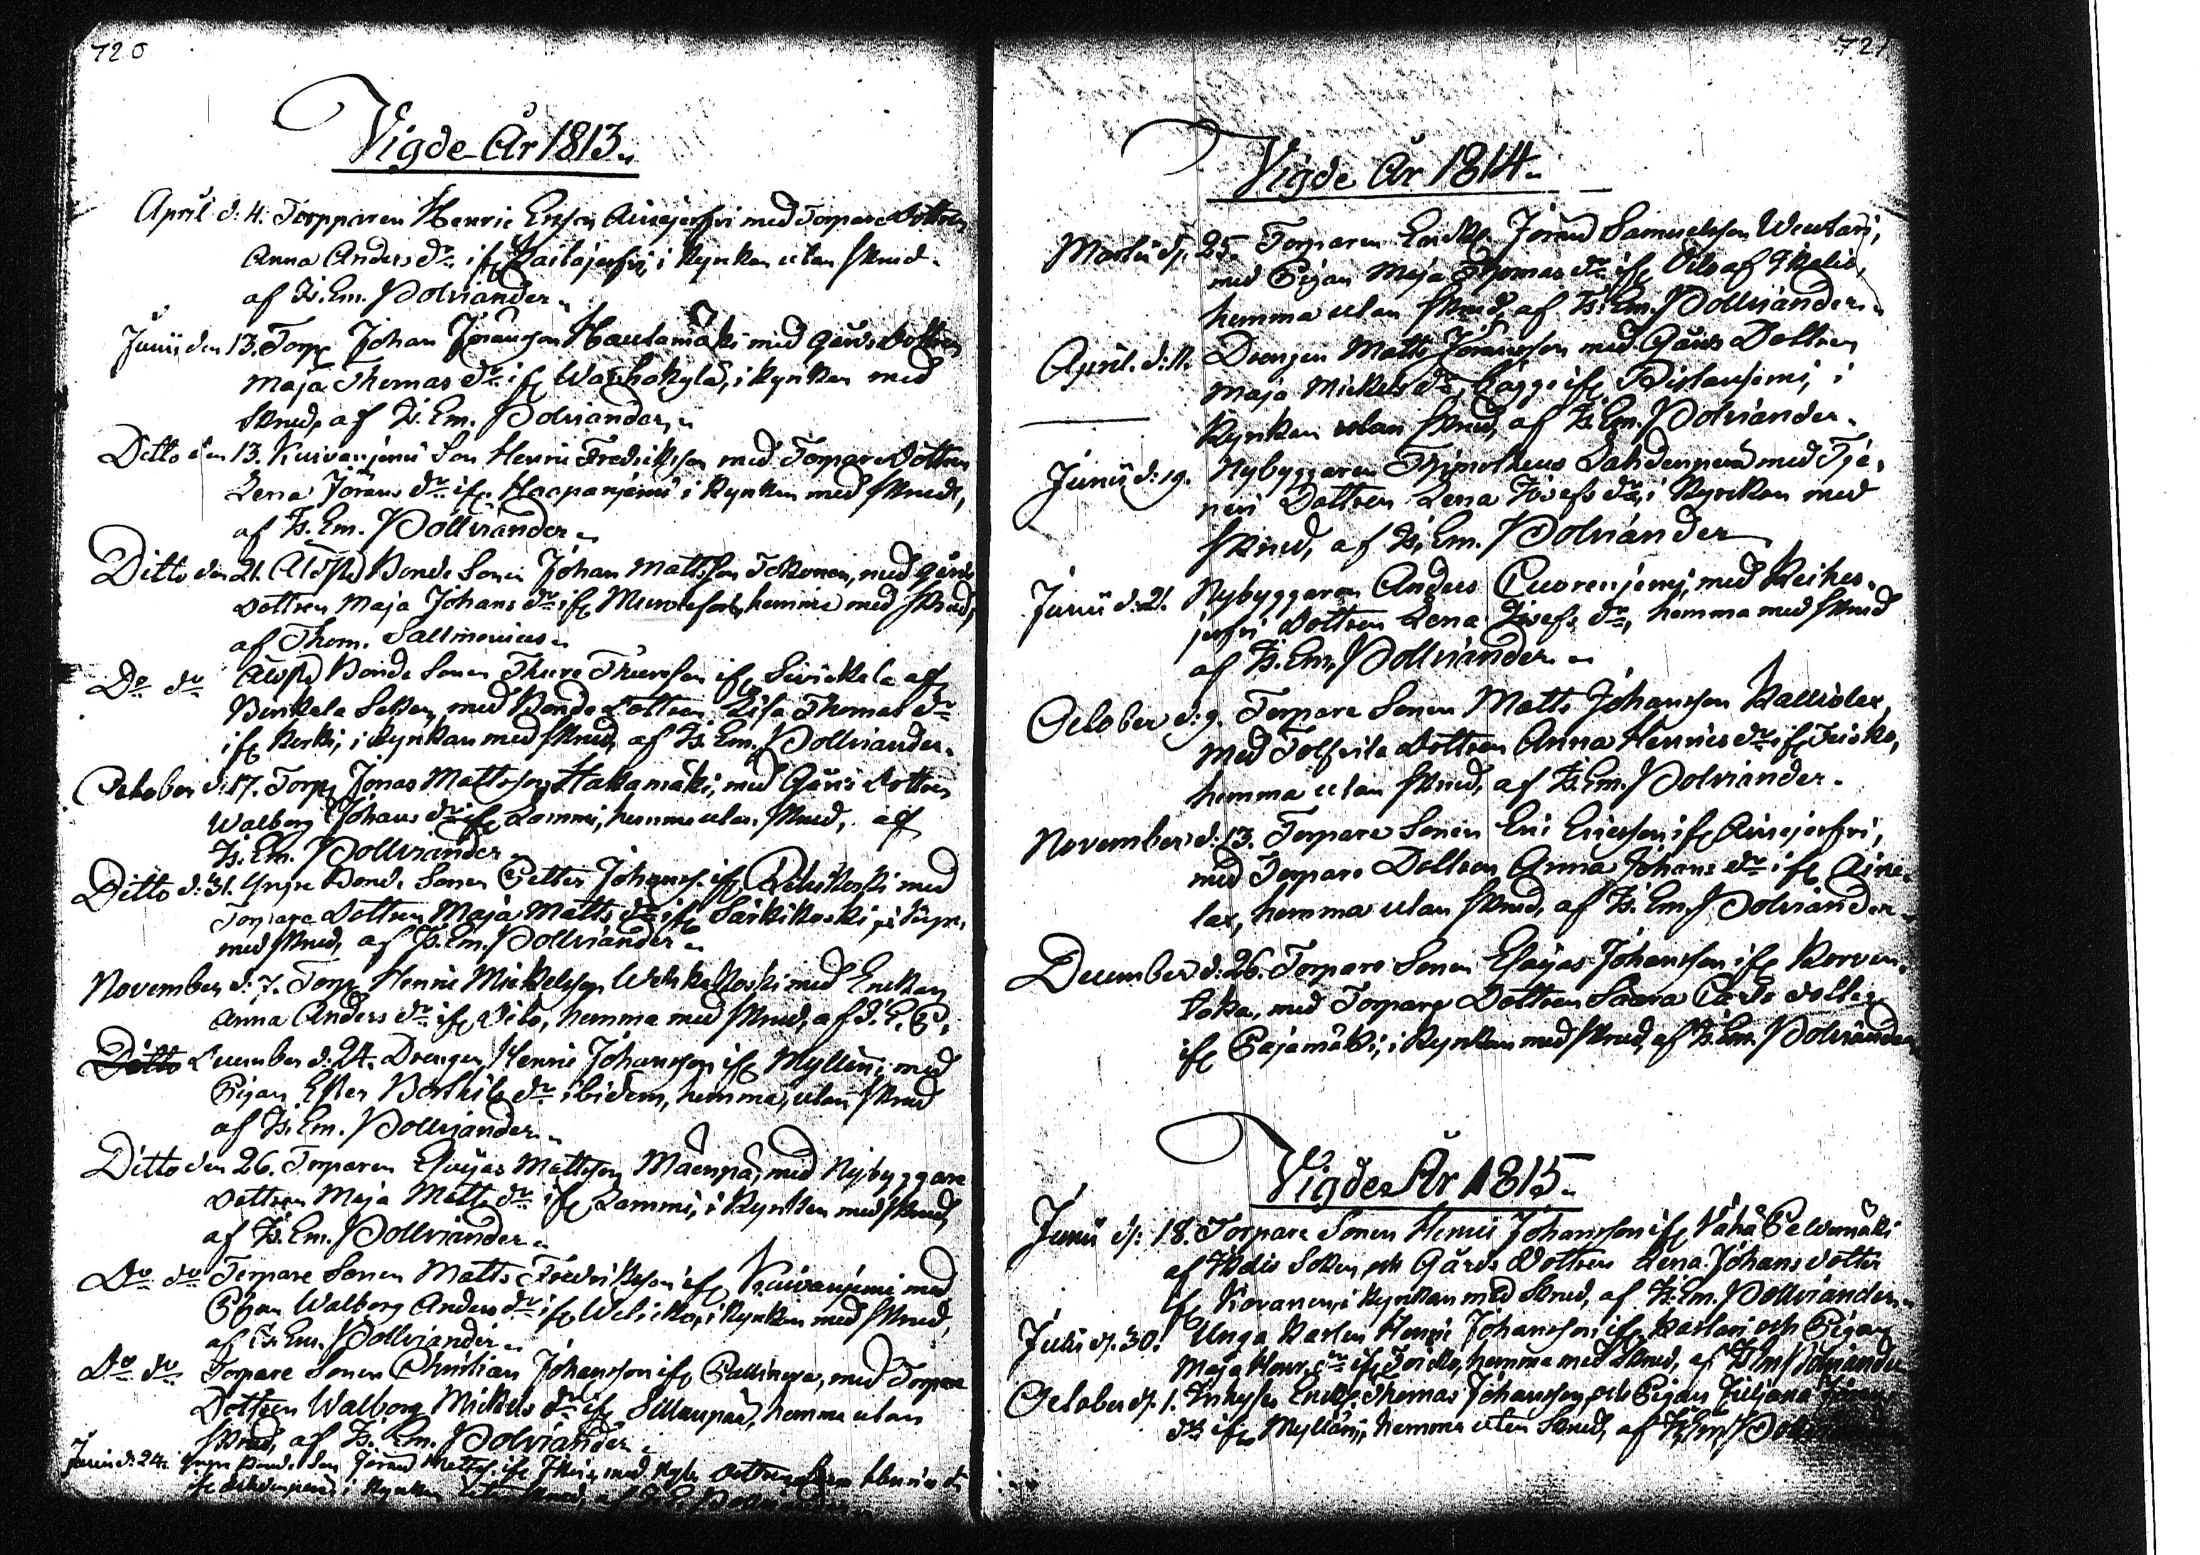 720
Vigde År 1813.
April d: 4. Torpparen Henric Ersson Ainejerfvi med Torpare Dottren
Anna Anders dr. if. i Kyrkan utan skrud
af Is. Em. Polviander
Junii den 13. Torp. Johan Jöransson Hautamäki med Gårds Dottren
Maja Thomas dr. if. Wanhakylä, i kyrkan med
skrud, af Is. Em. Polviander
Ditto den 13. Kuivasjärvi Son Henric Fredricksson med Torpare Dottren
Lena Jörans dr. if. i kyrkan med skrud,
af Is. Em. Pollviander
Ditto den 21. Bonde Sonen Johan Mattsson med Gårds
dottren Maja Johans dr. if. hemma med skrud,
af Thom. Sallmenius
Do. do. Bonde Sonen Thure Thuresson if. Sivickala af
Socken, med Bonde Dottren Lisa Thomas dr.
if. Koski, i kyrkan med skrud, af Is. Em. Pollviander
October d: 17. Torp. Jonas Mattsson Hakamäki, med Gårds Dottren
Walborg Johans dr. if. Lammi, hemma utan skrud, af
Is. Em. Pollviander
Ditto d: 31. Yngre Bonde Sonen Petter Johanss. if. med
Torpare Dottren Maja Matts dr. if. Särkikoski
med skrud, af Is. Em. Pollviander
November d: 7. Torp. Henric Mickelsson med Enkan
Anna Anders dr. if. Vilo, hemma med skrud, af I. E. P.
Ditto December d: 24. Drengen Henric Johansson if. Mylleni med
Pigan Ester Berthils dr. ibidem, hemma, utan skrud
af Is. Em. Pollviander
Ditto den 26. Torparen Esaijas Mattsson Mäenpä, med Nybyggare
dottren Maja Matts dr. if. Lammi, i Kyrkan med skrud,
af Is. Em. Pollviander
Do. do. Torpare Sonen Matts Fredriksson if. Kuivasjerni med
Pigan Walborg Anders dr. if. i kyrkan med skrud,
af Is. Em. Pollviander
Do. do. Torpare Sonen Christian Johansson if. med Torpare
Dottren Walborg Mickels dr. if. Sillanpää, hemma utan
skrud, af Is. Em. Polviander
Junii d: 24. Yngre Bonde Son Jörand Mattss. if. med dottren
i Kyrkan utan skrud, af
721
Vigde År 1814.
Martii d. 25. Torparen Enckl. Jörand Samuelsson Wentari,
med Pigan Maja Thomas dr. if. Vilo af Ikalis,
hemma utan skrud, af Is. Em. Pollviander
April. d: 11. Drengen Matts Jöransson med Gårds Dottren
Maja Mickels dr. if. i
Kyrkan utan skrud, af Is. Em. Polviander
Junii d: 19. Nybyggaren Thimotheus Lahdenperä med
Dottren Lena Josefs dr. i Kyrckan med
skrud, af Is. Em. Polviander
Junii d: 21. Nybyggaren Anders med Keikes-
jerfvi dottren Lena Josefs dr., hemma med skrud
af Is. Em. Pollviander
October d: 9. Torpare Sonen Matts Johansson
med dottren Anna Henrics dr. if.
hemma utan skrud, af Is. Em. Polviander
November d: 13. Torpare Sonen Eric Ericsson if. Ainejerfvi,
med Torpare Dottren Anna Johans dr. if. Aine-
lax, hemma utan skrud, af Is. Em. Polviander
December d: 26. Torpare Sonen Esaijas Johansson if. Korven-
loka, med Torpare Dottren Saara Carls dotter
if. Pajamäki, i Kyrkan med skrud, af Is. Em. Polviander
Vigde År 1815.
Junii d: 18. Torpare Sonen Henric Johansson if. Vähä
af Socken och Gårds Dottren Lena Johans dotter
if. i kyrkan med skrud, af Is. Em. Pollviander
Julii d. 30. Unga Karlen Henric Johansson if. och Pigan
Maja Henr. dr. if. hemma med skrud, af Is. Em. Polviander
October d. 1. Enckl. Thomas Johansson, och Pigan Juljana
dr. if. Mylläri, hemma utan skrud, af Is. Em.